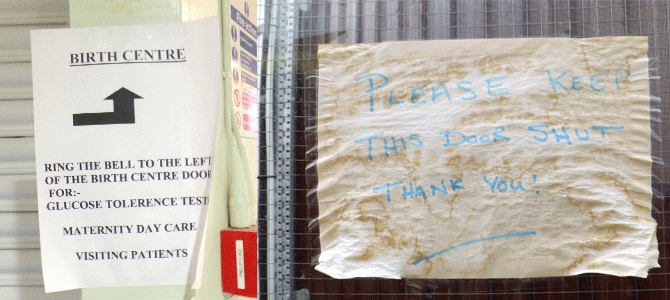 BIRTH CENTRE
RING THE BELL TO THE LEFT
OF THE BIRTH CENTRE DOOR
FOR:-
GLUCOSE TOLERENCE TEST
MATERNITY DAY CARE
VISITING PATIENTS
PLEASE KEEP
THIS DOOR SHUT
THANK YOU!